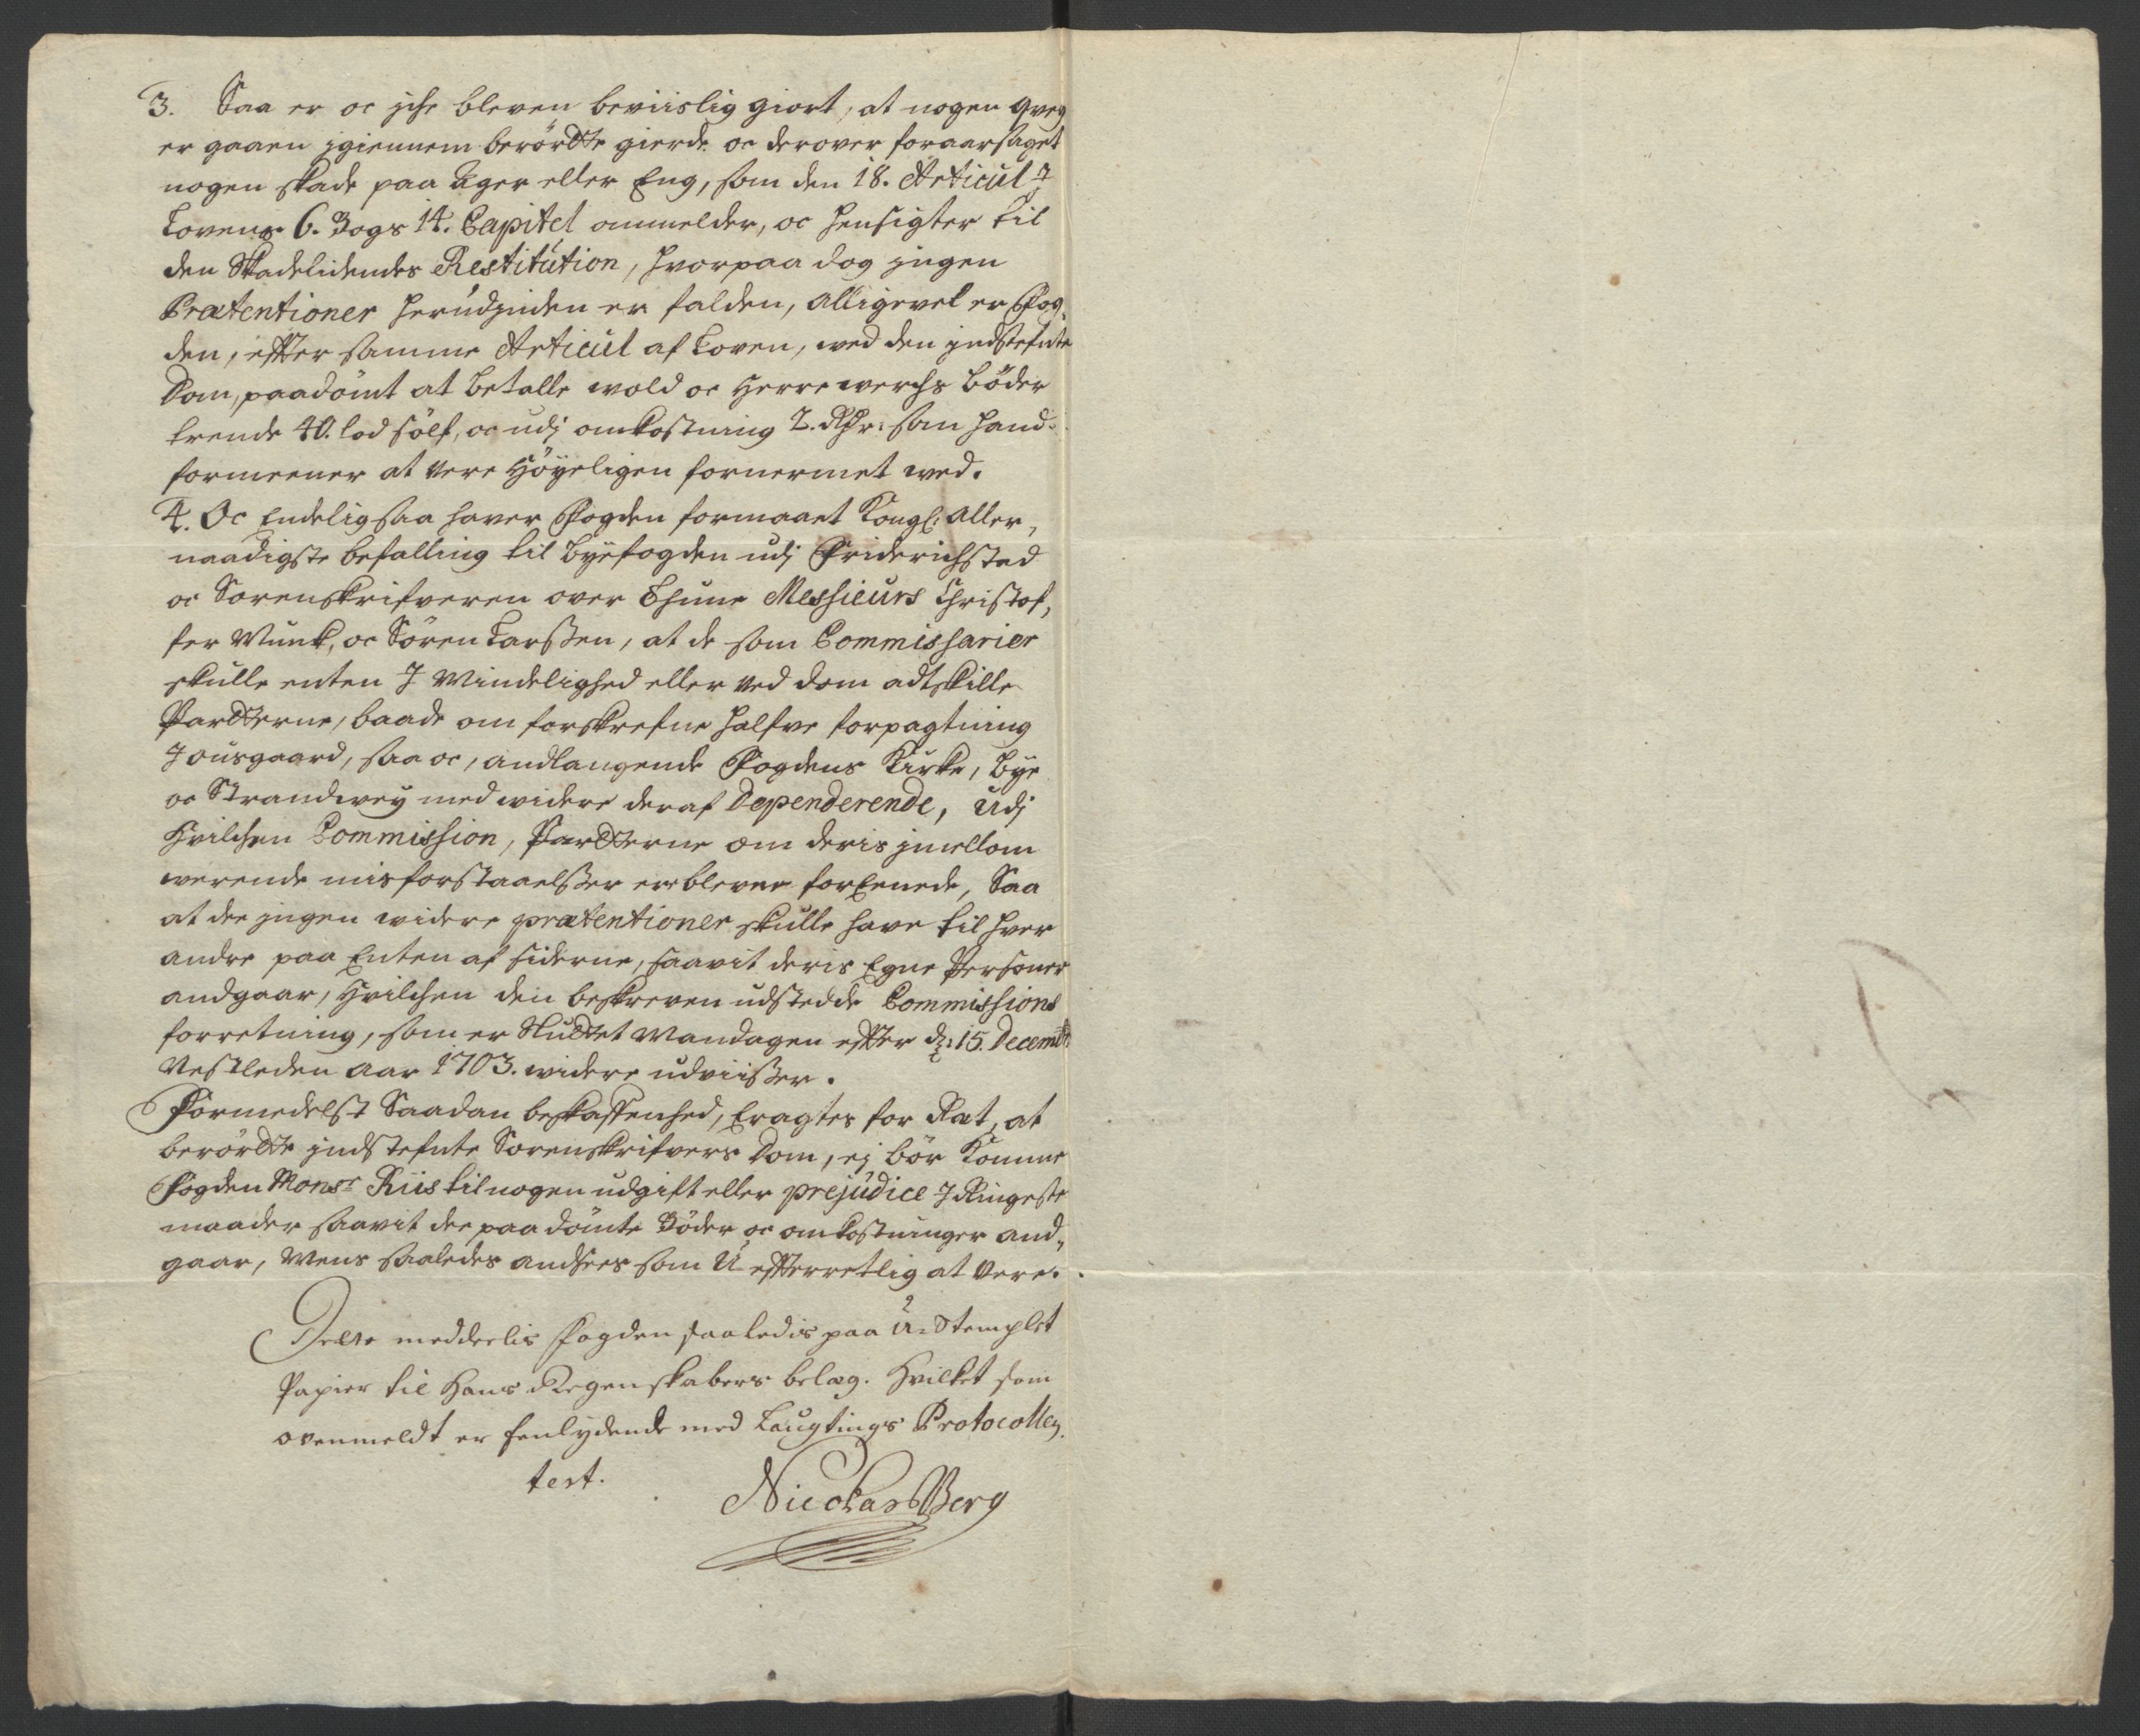 3. Saa er oc iche bleven beviislig giort, at nogen qveg
er gaaen igiennem berördte gierde oc derover foraarsaget
nogen skade paa Ager eller Eng, som den 18. Articul J
Lovens 6. Bogs 14. Capitel ommelder, oc hensigter til
den Skadelidendes Restitution, hvorpaa dog ingen
Prætentioner herudjnden er falden, alligevel er Fog-
den, effter samme Articul af Loven, wed den indstefnte
Dom, paadömt at betalle wold oc Herrewerchs böder
trende 40. lod sölf, oc udj omkostning 2. Rdr: som hand
formeener at vere Höyeligen fornermet wed.
4. Oc Endelig saa haver Fogden formaaet Kongl: Aller-
naadigste befalling til Byefogden udj Friderichstad
oc Sorenskrifveren over Thune Messieurs Christof-
fer Munk, oc Sören Larssen, at de som Commissarier
skulle enten J Mindelighed eller ved dom adtskille
Pardterne, baade om forskrefne halfve forpagtning
J ousgaard, saa oc, andlangende Fogdens Kirke, bye
oc Strandwey med widere deraf Dependerende, Udj
Hvilchen Commission, Pardterne om deris imellom
werende misforstaaelsser ere blevne forEenede, Saa
at de ingen widere prætentioner skulle have til hver
andre paa Enten af siderne, saavit deris Egne Personer
andgaar, Hvilchen den beskreven udstedde Commissions
forretning, som er Sluttet Mandagen effter d: 15. Decemb:
Nestleden Aar 1703. widere udviisser.
Formedelst Saadan beskaffenhed, Eragtes for Ræt, at
berördte indstefnte Sorenskrifvers Dom, ej bör Komme
Fogden Monsr Riis til nogen udgift eller prejudice J Ringeste
maader saavit de paa dömte Böder oc omkostninger and-
gaar, Mens saaledes andsees som U-effterretlig at vere.
Dette meddeelis Fogden saaledis paa U-Stemplet
Papier til Hans Regenskabers belæg. Hvilket som
ovenmeldt er Eenlydende med Laugtings Protocollen.
test.
Nicolas Berg